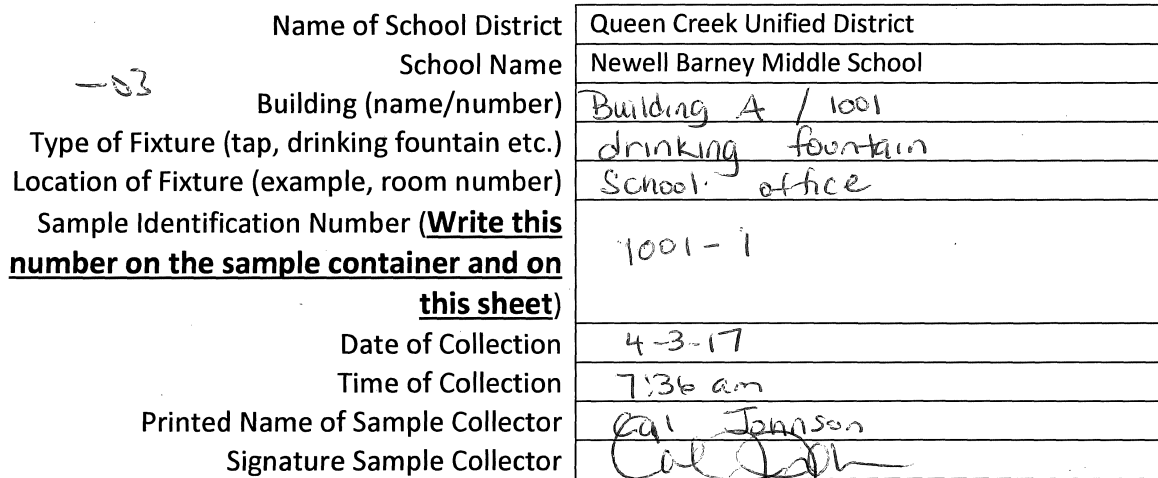 Name of School District Queen Creek Unified District
School Name Newell Barney Middle School
-03
Building (name/number) Building A / 1001
Type of Fixture (tap, drinking fountain etc.) drinking fountain
Location of Fixture (example, room number) School office
Sample Identification Number (Write this
number on the sample container and on
this sheet) 1001-1
Date of Collection 4-3-17
Time of Collection 7:36 am
Printed Name of Sample Collector Cal Johnson
Signature Sample Collector Cal